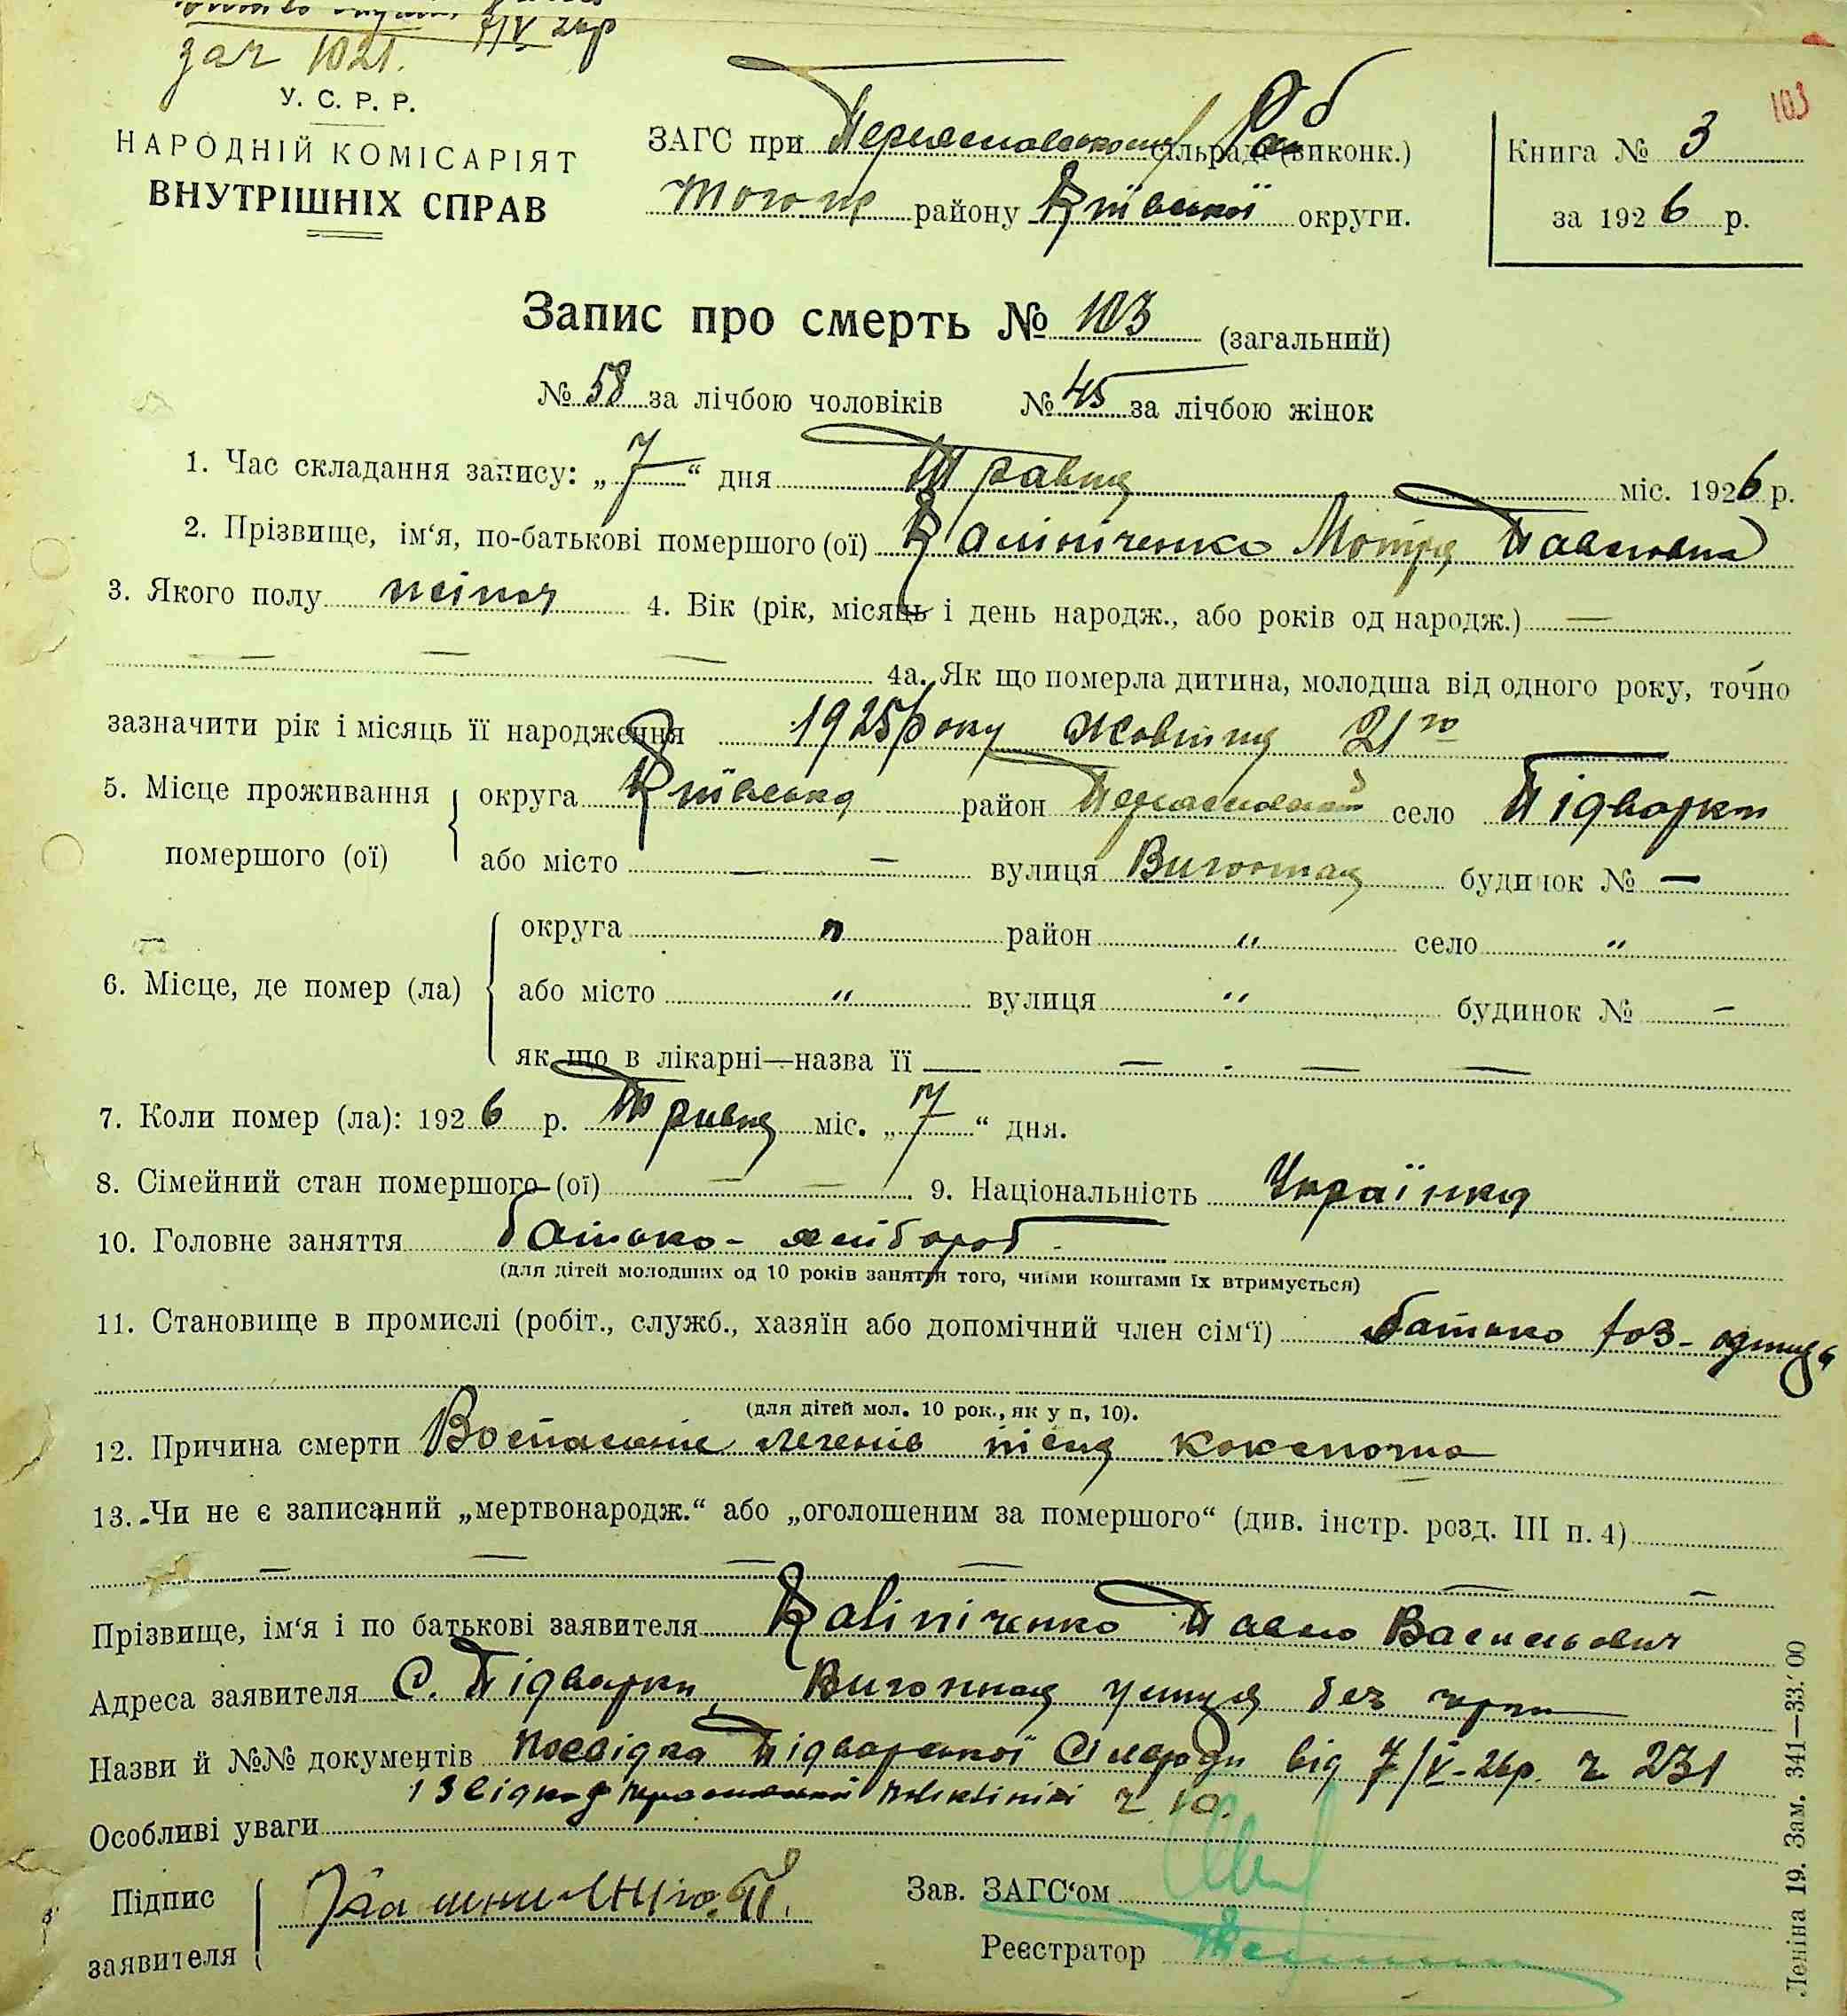 зач 1021. 7/V 26р
У. С. Р. Р.
НАРОДНІЙ КОМІСАРІЯТ
ВНУТРІШНІХ СПРАВ
ЗАГС при Переяславському сільраді (виконк.)
того пр району Київської округи.
Книга № 3
за 1926 р.
103
Запис про смерть № 103 (загальний)
№ 58 за лічбою чоловіків № 45 за лічбою жінок
1. Час складання запису: „7“ дня Травня міс. 1926 р.
2. Прізвище, ім‘я, по-батькові помершого (ої) Калініченко Мотря Павловна
3. Якого полу жіноч 4. Вік (рік, місяць і день народж., або років од народж.) —
— — — 4а. Як що померла дитина, молодша від одного року, точно
зазначити рік і місяць її народження 1925 року Жовтня 21го
5. Місце проживання помершого (ої)
округа Київська район Переяславський село Підварки
або місто — — вулиця Вигонная будинок № —
6. Місце, де помер (ла)
округа " район " село "
або місто " вулиця " будинок № —
як що в лікарні—назва її — — — —
7. Коли помер (ла): 1926 р. Травня міс. „7“ дня.
8. Сімейний стан помершого (ої) — — 9. Національність Українка
10. Головне заняття батько - хлібороб
(для дітей молодших од 10 років заняття того, чиїми коштами їх втримується)
11. Становище в промислі (робіт., служб., хазяїн або допомічний член сім‘ї) батько
(для дітей мол. 10 рок., як у п, 10).
12. Причина смерти Воспаленіє легенів після коклюша
13. Чи не є записаний „мертвонародж.“ або „оголошеним за помершого“ (див. інстр. розд. III п. 4)
— — — — — —
Прізвище, ім‘я і по батькові заявителя Каlініченко Павло Васильович
Адреса заявителя С. Підварки, Вигонная улиця без
Назви й №№ документів Посвідка Підварської Сільради від 7/V-26р. ч 231
і Звідка Переяславської поlікlініки ч 10.
Особливі уваги
Підпис заявителя
Зав. ЗАГС‘ом
Реєстратор
Леніна 19. Зам. 341—33.'00